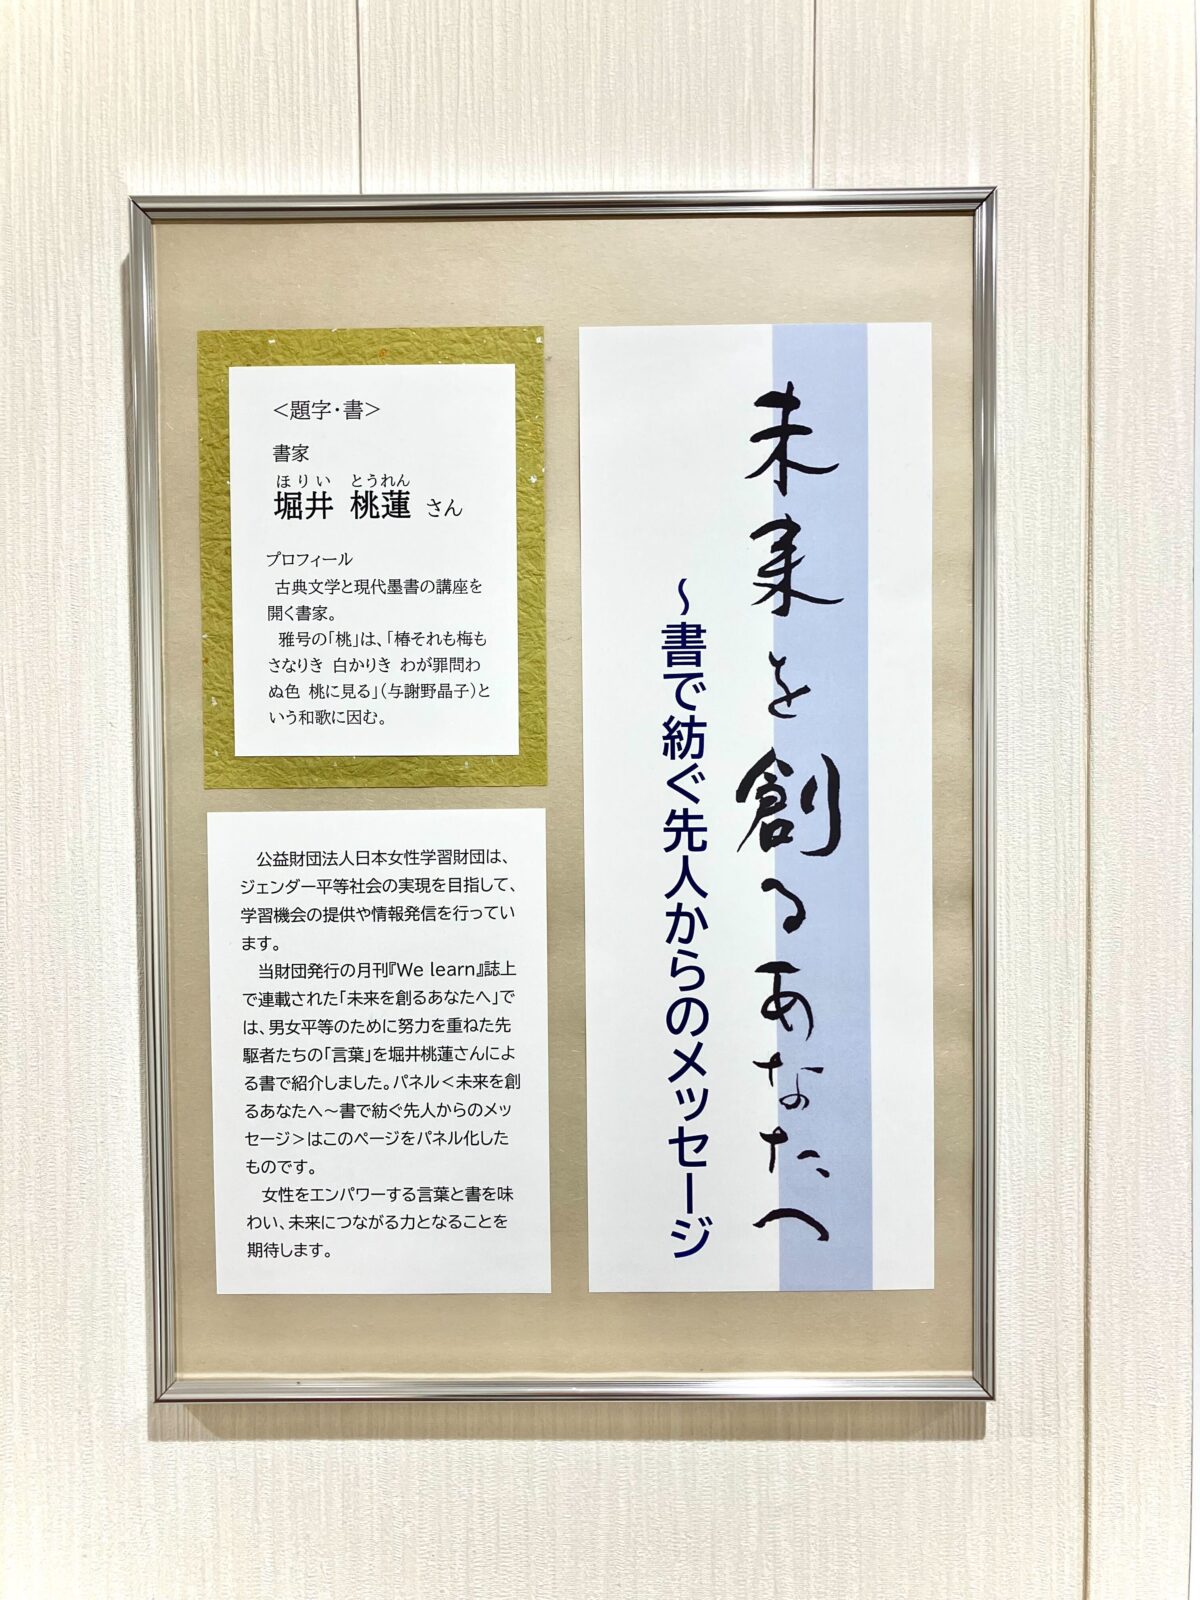 未来を創るあなたへ
～書で紡ぐ先人からのメッセージ
＜題字・書＞
書家
ほりい とうれん
堀井 桃蓮 さん
プロフィール
古典文学と現代墨書の講座を
開く書家。
雅号の「桃」は、「椿それも梅も
さなりき 白かりき わが罪問わ
ぬ色 桃に見る」（与謝野晶子）と
いう和歌に因む。
公益財団法人日本女性学習財団は、
ジェンダー平等社会の実現を目指して、
学習機会の提供や情報発信を行ってい
ます。
当財団発行の月刊『We learn』誌上
で連載された「未来を創るあなたへ」で
は、男女平等のために努力を重ねた先
駆者たちの「言葉」を堀井桃蓮さんによ
る書で紹介しました。パネル＜未来を創
るあなたへ～書で紡ぐ先人からのメッ
セージ＞はこのページをパネル化した
ものです。
女性をエンパワーする言葉と書を味
わい、未来につながる力となることを
期待します。